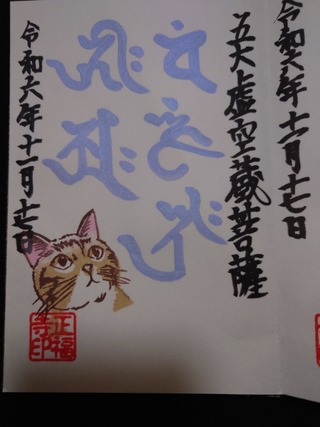 令和六年十一月十七日
五大虚空蔵菩薩
令和六年十一月十七日
正福
寺印